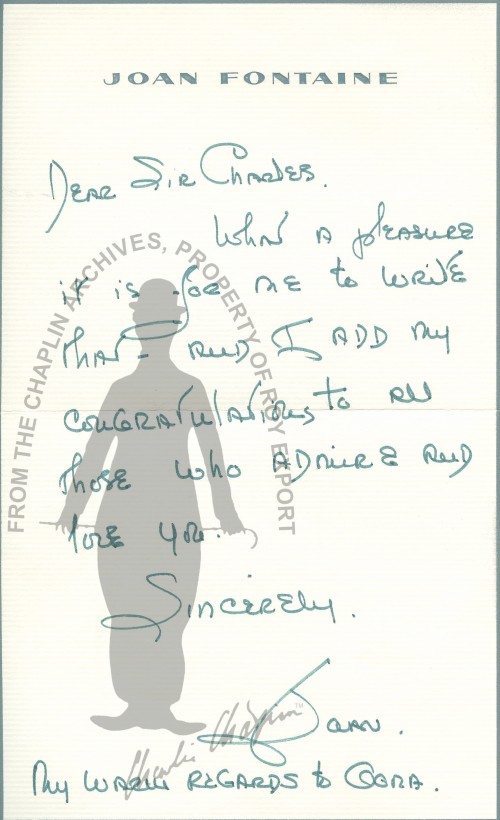 JOAN FONTAINE
Dear Sir Charles.
What a pleasure
it is for me to write
that - and I add my
congratulations to all
those who admire and
love you.
Sincerely.
Joan.
My warm regards to Oona.
FROM THE CHAPLIN ARCHIVES, PROPERTY OF ROY EXPORT
Charlie Chaplin™